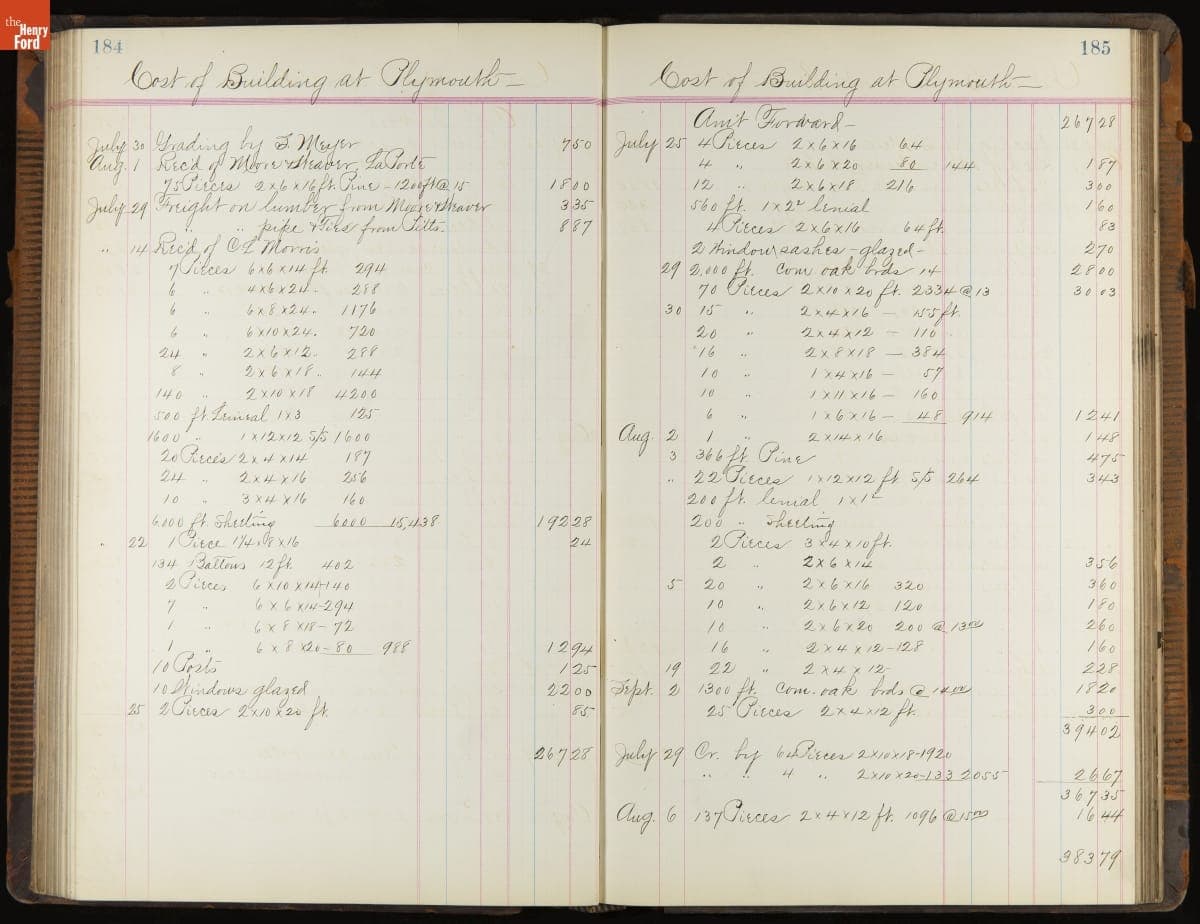 the
Henry
Ford
184
Cost of Building at Plymouth —
July 30 Grading by F. Meyer 750
Aug. 1 Rec'd of Moore & Weaver, LaPorte
75 Pieces 2x6x16 ft. Pine - 1200 ft @ 15 1800
July 29 Freight on lumber from Moore & Weaver 335
" " pipe & Ties from Fitts. 887
" 14 Rec'd of C L Morris
7 Pieces 6x6x14 ft. 294
6 " 4x6x24 " 288
6 " 6x8x24 . 1176
6 " 6x10x24 . 720
24 " 2x6x12 . 288
8 " 2x6x18 . 144
140 " 2x10x18 4200
500 ft. Lineal 1x3 125
1600 " 1x12x12 S/S 1600
20 Pieces 2x4x14 187
24 " 2x4x16 256
10 " 3x4x16 160
6000 ft. Sheeting 6000 15,438 19228
" 22 1 Piece 1 1/4x8x16 24
134 Battons 12 ft. 402
2 Pieces 6x10x14-140
7 " 6x6x14-294
1 " 6x8x18-72
1 " 6x8x20-80 988 1294
10 Posts 125
10 Windows glazed 2200
25 2 Pieces 2x10x20 ft. 85
26728
185
Cost of Building at Plymouth —
Amt Forward — 26728
July 25 4 Pieces 2x6x16 64
4 " 2x6x20 80 144 187
12 " 2x6x18 216 300
560 ft. 1x2" lenial 160
4 Pieces 2x6x16 64 ft. 83
2 Window sashes - glazed - 270
29 2,000 ft. Com oak brds 14 2800
70 Pieces 2x10x20 ft. 2334 @ 13 3003
30 15 " 2x4x16 — 155 ft.
20 " 2x4x12 — 110
16 " 2x8x18 — 384
10 " 1x4x16 — 57
10 " 1x11x16 — 160
6 " 1x6x16 — 48 914 1241
Aug. 2 1 " 2x14x16 148
3 366 ft. Pine 475
" 22 Pieces 1x12x12 ft S/S 264 343
200 ft. lenial 1x1"
200 " Sheeting
2 Pieces 3x4x10 ft.
2 " 2x6x14 356
5 20 " 2x6x16 320 360
10 " 2x6x12 120 180
10 " 2x6x20 200 @ 1300 260
16 " 2x4x12-128 160
19 22 " 2x4x12 228
Sept. 2 1300 ft. Com. oak brds @ 1400 1820
25 Pieces 2x4x12 ft. 300
39402
July 29 Cr. by 64 Pieces 2x10x18-1920
" " " 4 " 2x10x20-133 2055 2667
36735
Aug. 6 137 Pieces 2x4x12 ft. 1096 @ 1500 1644
38379